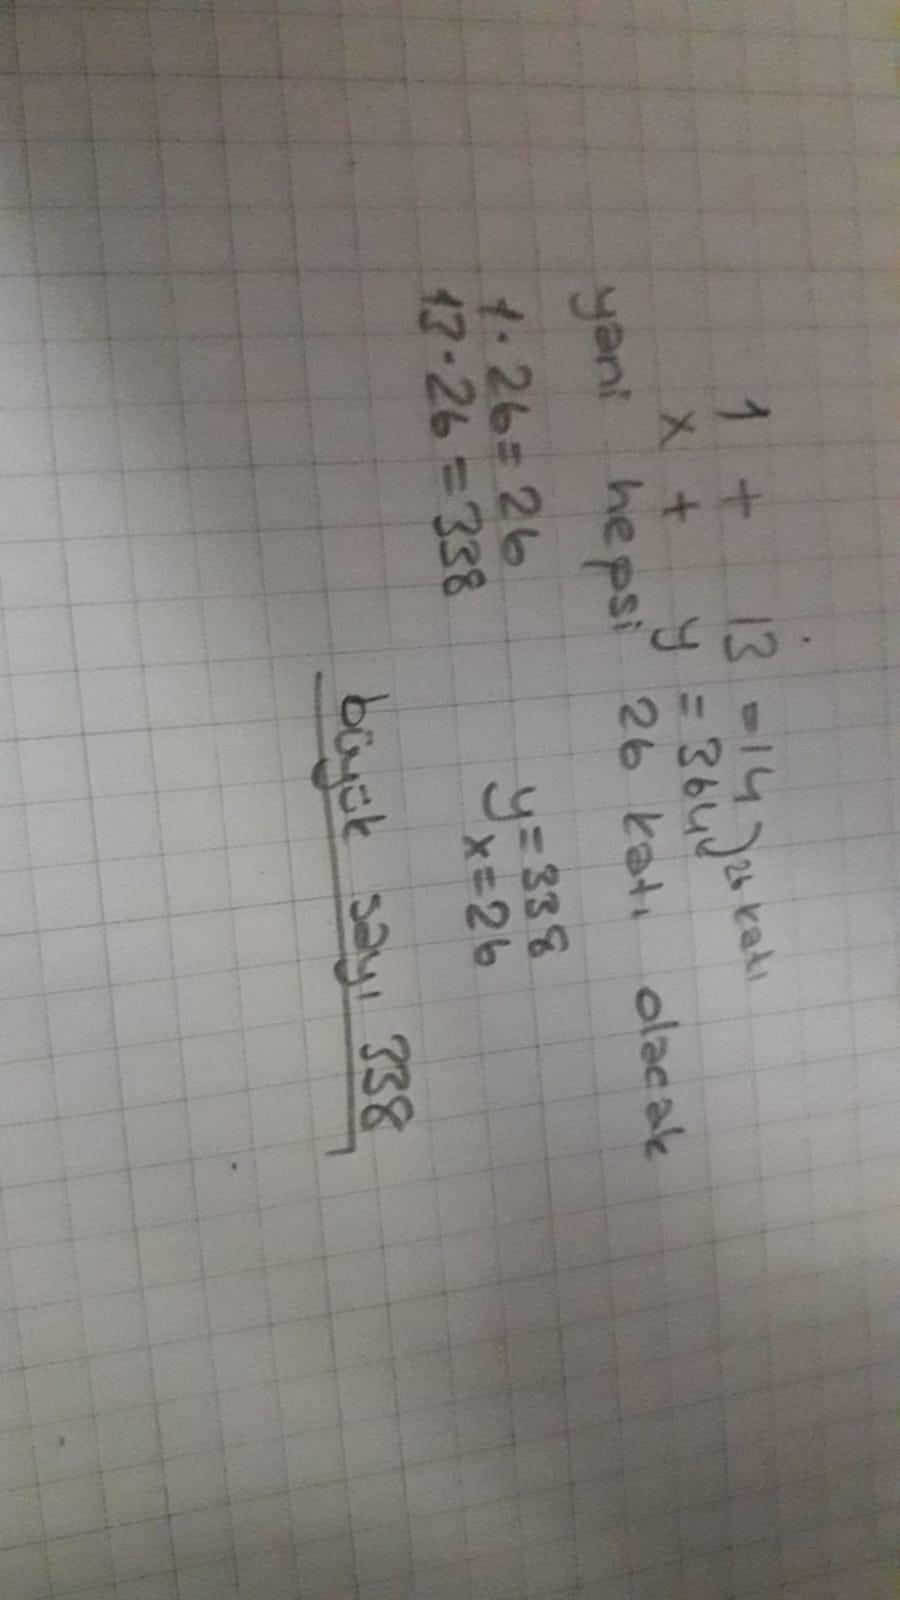 1 + 13 = 14 ) 26 katı
x + y = 364
yani hepsi 26 katı olacak
1 · 26 = 26 y = 338
13 · 26 = 338 x = 26
büyük sayı 338